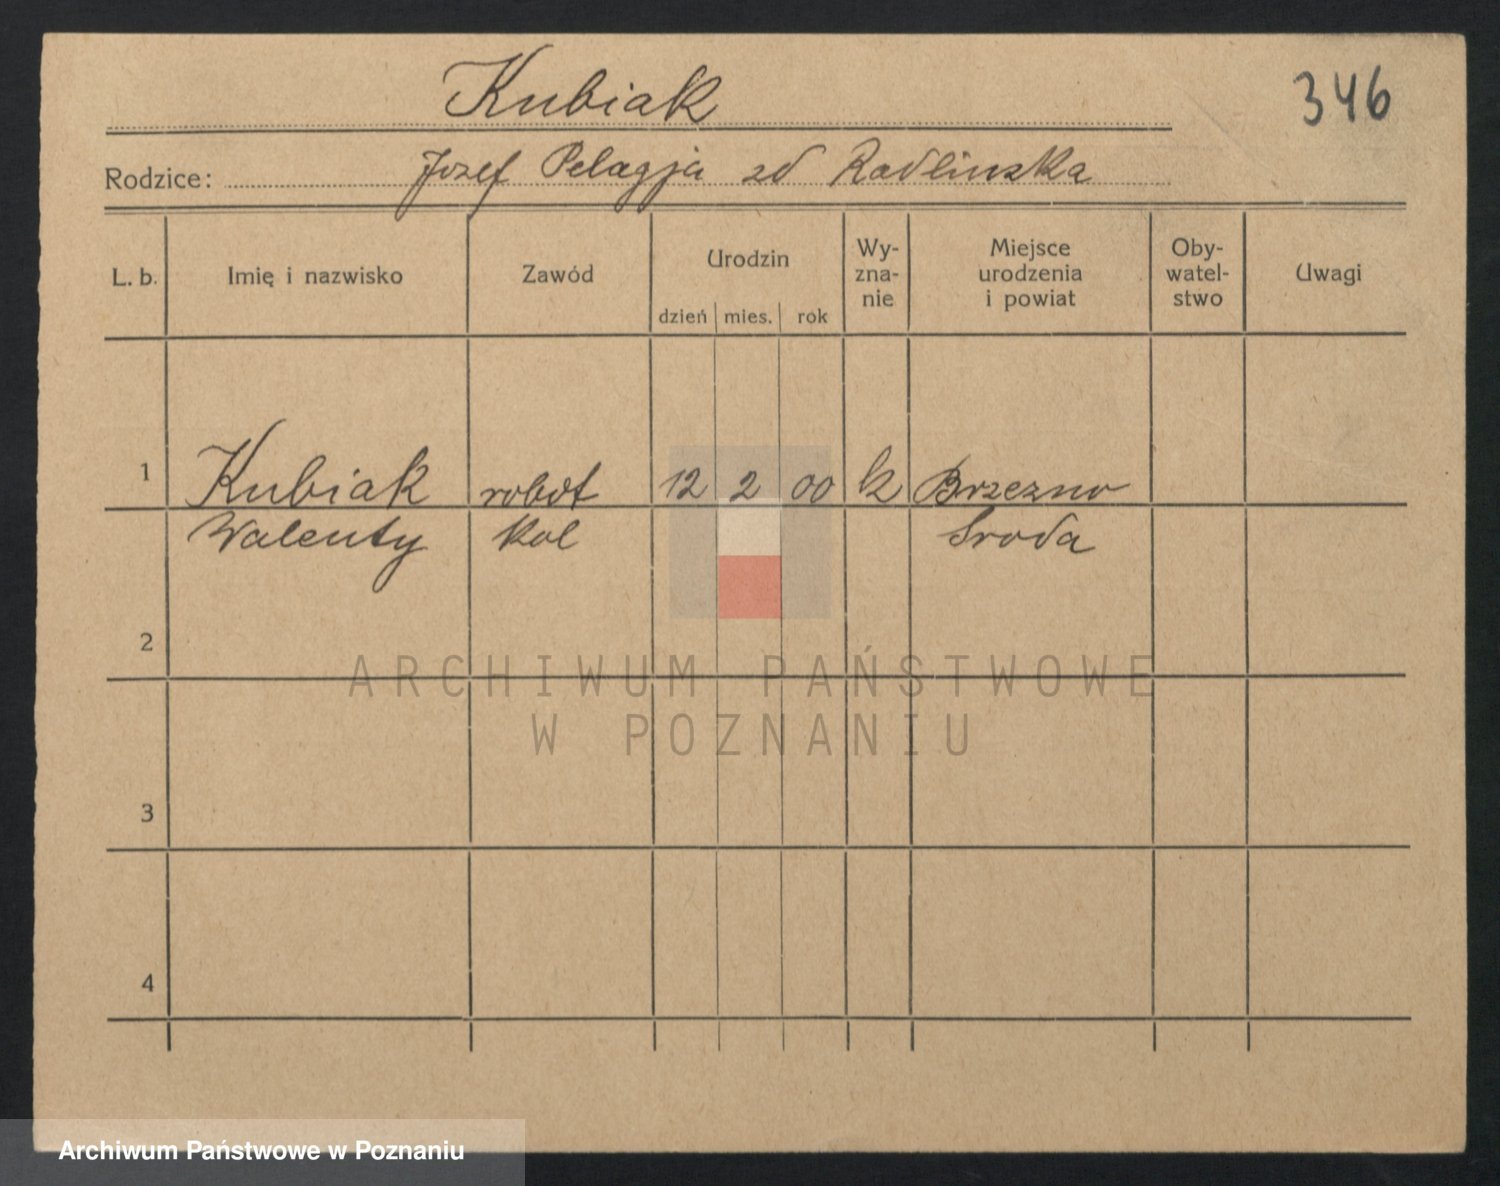 Kubiak
346
Rodzice: Jozef Pelagja zd Radlinska
L. b. Imię i nazwisko Zawód Urodzin dzień mies. rok Wy-zna-nie Miejsce urodzenia i powiat Oby-watel-stwo Uwagi
1 Kubiak robot 12 2 00 k Brzezno
Walenty kol Sroda
2
ARCHIWUM PAŃSTWOWE
W POZNANIU
3
4
Archiwum Państwowe w Poznaniu